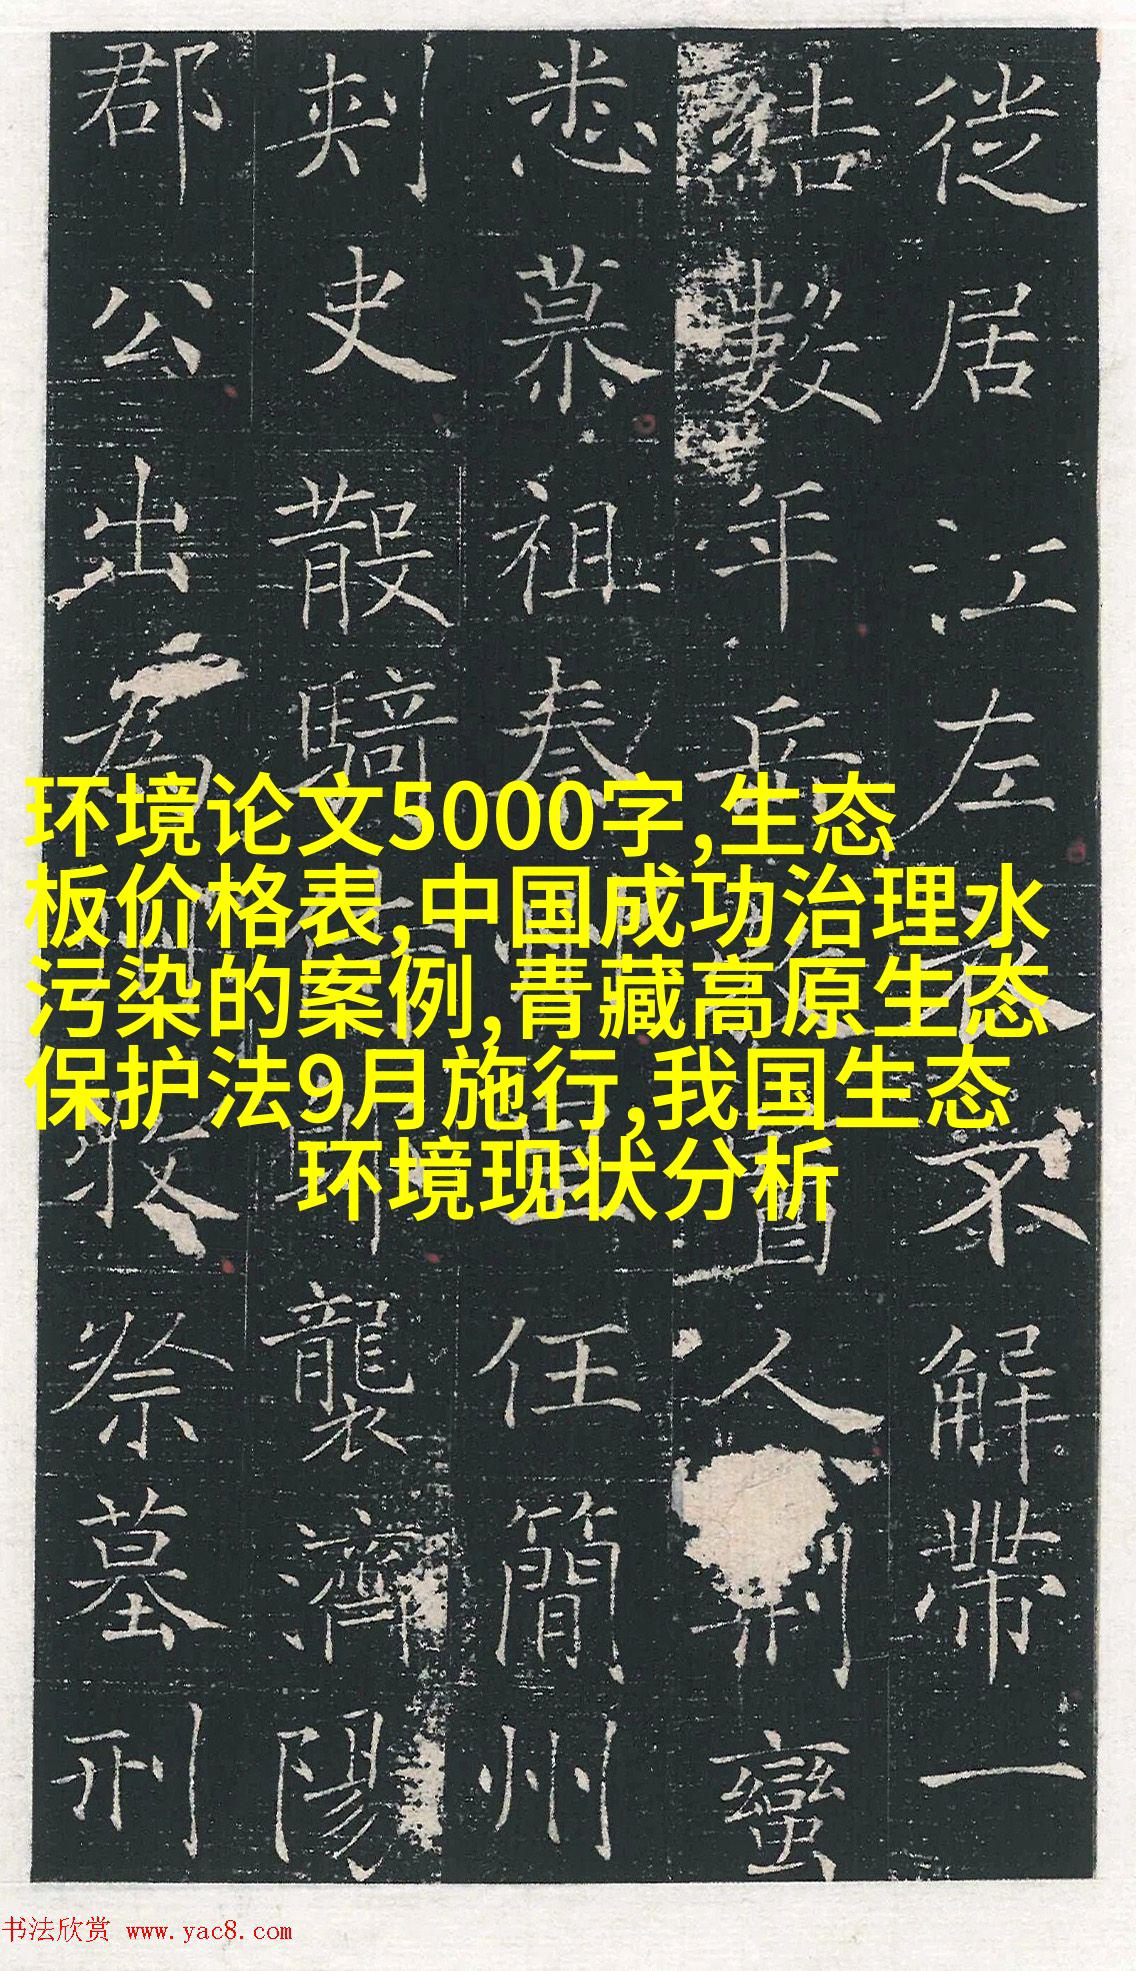 徙居江左衣不解帶一
結數年人制蠻
悉慕祖任簡州
刺史散騎侍郎襲濟陽
郡公出為牧祭墓刑
环境论文5000字,生态
板价格表,中国成功治理水
污染的案例,青藏高原生态
保护法9月施行,我国生态
环境现状分析
书法欣赏 www.yac8.com